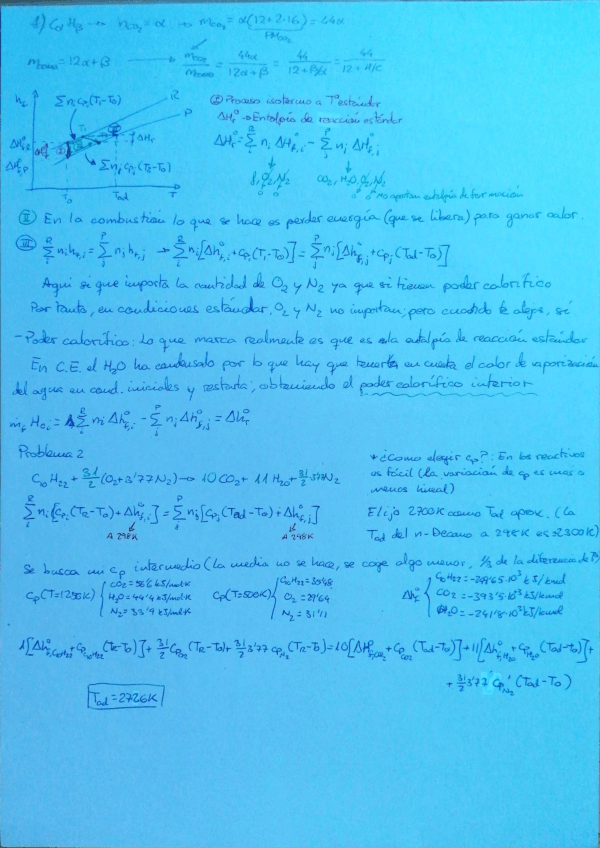 1) CαHβ → nCO2 = α → mCO2 = α(12+2·16) = 44α
PMCO2
mcomb = 12α+β → mCO2/mcomb = 44α/(12α+β) = 44/(12+β/α) = 44/(12+H/C)
Σ ni cpi (Tr-T0)
R
P
T0 Tad T
Σ nj cpj (Tr-T0)
② Proceso isotermo a Tª estándar
ΔHr° → Entalpía de reacción estándar
ΔHr° = Σ ni ΔHf,i° - Σ nj ΔHf,j°
f, O2, N2 CO2, H2O, O2, N2
0 0 0 0 No aportan entalpía de formación
II En la combustión lo que se hace es perder energía (que se libera) para ganar calor.
III Σ ni hti = Σ nj htj → Σ ni [Δhf,i° + cpi (Tr-T0)] = Σ nj [Δhf,j° + cpj (Tad-T0)]
Aquí si que importa la cantidad de O2 y N2 ya que si tienen poder calorífico
Por tanto, en condiciones estándar O2 y N2 no importan; pero cuando te alejas, sí
- Poder calorífico: Lo que marca realmente es que es la entalpía de reacción estándar
En C.E. el H2O ha condensado por lo que hay que tenerlo en cuenta el calor de vaporización
del agua en cond. iniciales y restarla, obteniendo el poder calorífico inferior
= Σ ni Δhf,i° - Σ nj Δhf,j° = Δhr°
Problema 2
C10H22 + 31/2 (O2+3'77N2) → 10CO2 + 11H2O + 31/2 3'77N2
Σ ni [cpi (TR-T0) + Δhf,i°] = Σ nj [cpj (Tad-T0) + Δhf,j°]
A 298K A 298K
* ¿Como elegir cp?: En los reactivos
es fácil (la variación de cp es mas o
menos lineal)
Elijo 2700K como Tad aprox. (La
Tad del n-Decano a 298K es ≈2300K)
Se busca un cp intermedio (la media no se hace, se coge algo menor, 1/3 de la diferencia de Tª)
Cp(T=1298K) CO2 = 56'6 kJ/molK
H2O = 44'4 kJ/molK
N2 = 33'9 kJ/molK
Cp(T=500K) C10H22 =
O2 =
N2 = 31'11
Δhf° C10H22 = -249'65·10³ kJ/kmol
CO2 = -393'5·10³ kJ/kmol
H2O = -241'8·10³ kJ/kmol
1[Δhf,C10H22° + CpC10H22 (TR-T0)] + 31/2 CpO2 (TR-T0) + 31/2 3'77 CpN2 (TR-T0) = 10[Δhf,CO2° + CpCO2 (Tad-T0)] + 11[Δhf,H2O° + CpH2O (Tad-T0)] +
+ 31/2 3'77 CpN2' (Tad-T0)
Tad = 2726K